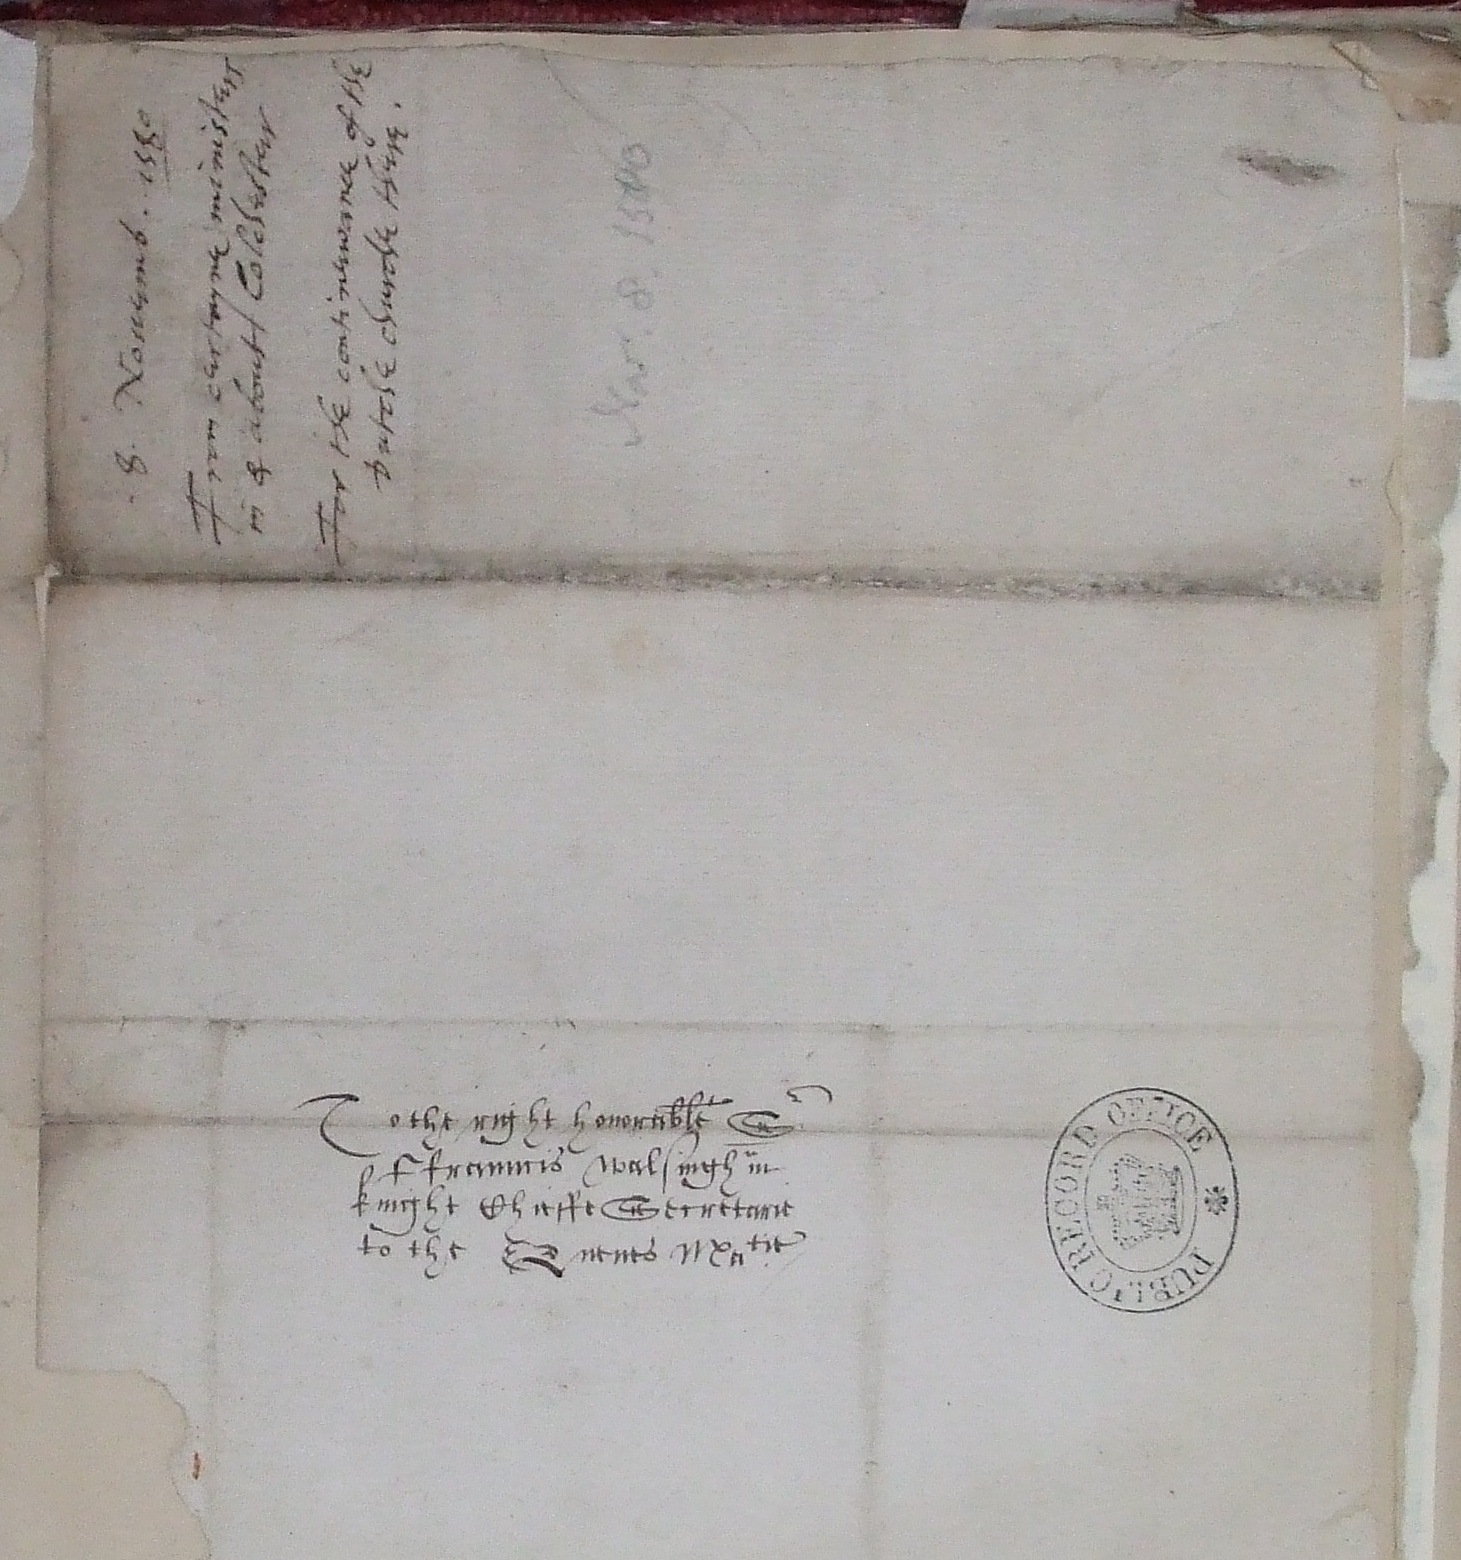 .8. Nouemb. 1580
From certayne ministers
in & about Colchester
For the continewance of the
dutche churche there.
Nov. 8. 1580
To the right honorable Sr
ffrauncis walsingham
knight Chieffe Secretarie
to the Quenes Matie
PUBLIC RECORD OFFICE